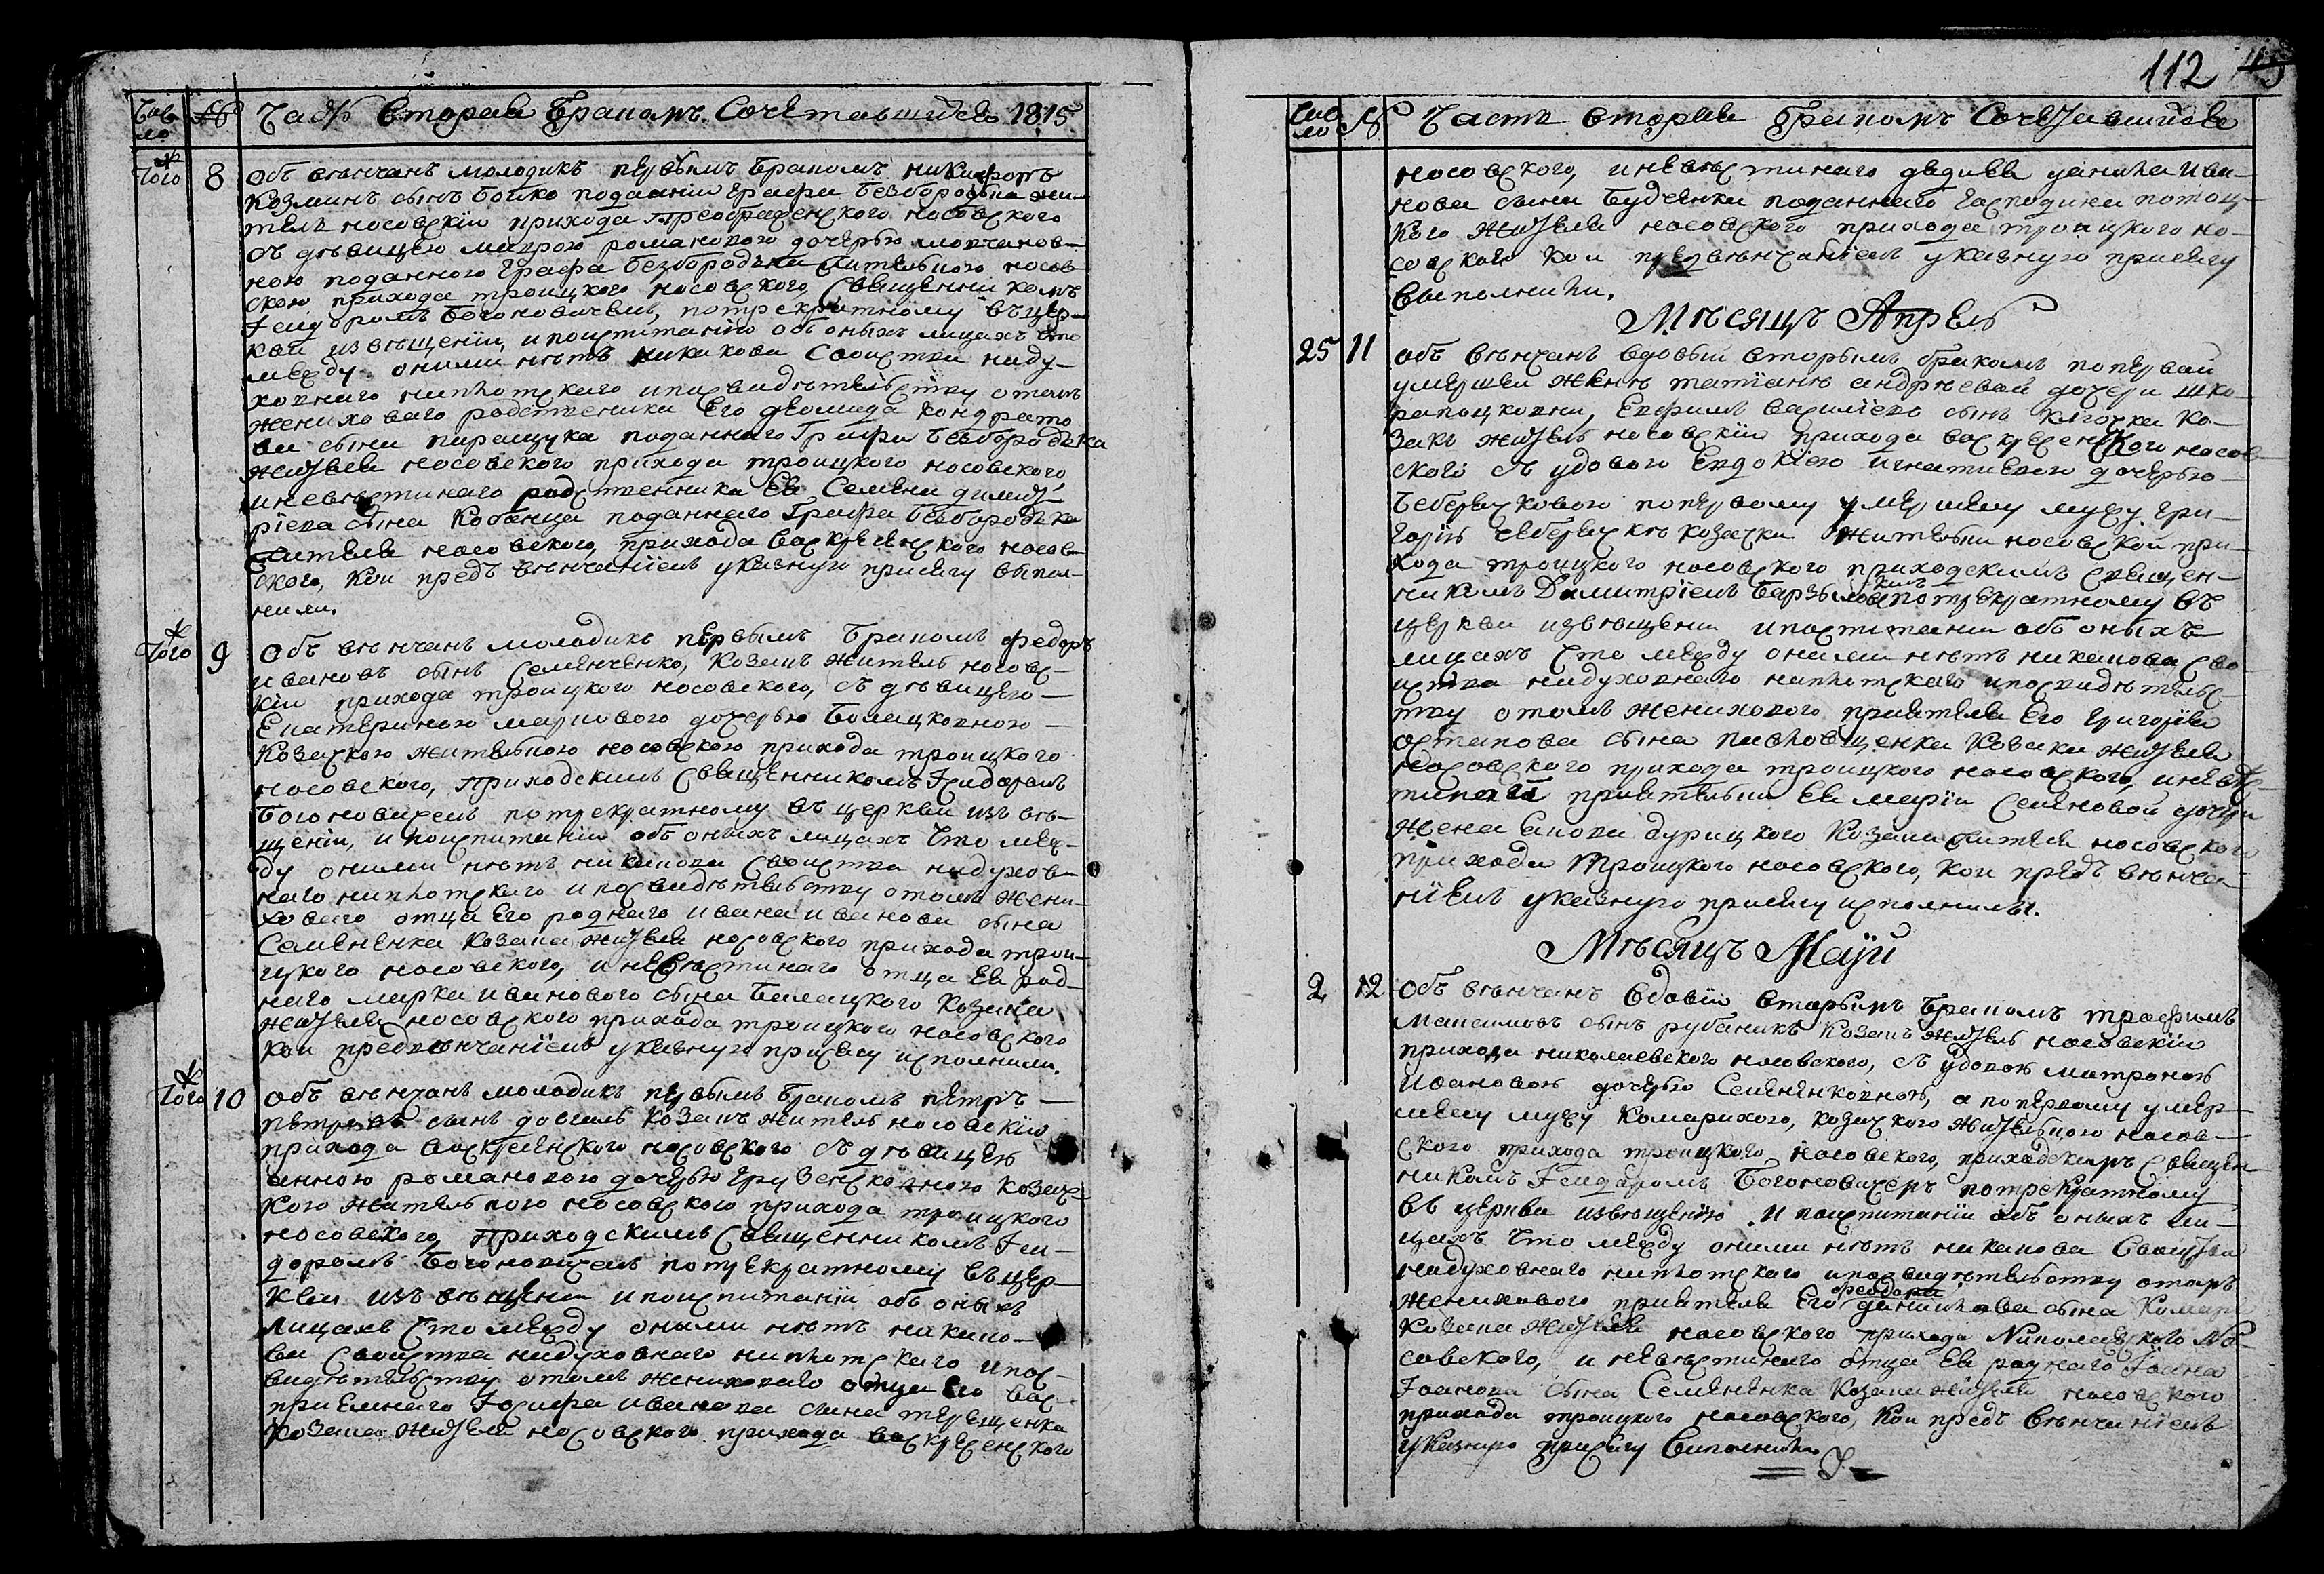 Чис
ло
№
Часть Вторая Бракомъ Сочетавшихся 1815
Того
8
Объ вѣнчанъ молодикъ первымъ бракомъ никифоръ
Козминъ сынъ бойко подданій Графа безбородька жи-
тель носовскїи прихода Преображенского носовского
съ дѣвицею маврою романовою дочерью мовчанов-
ною поданного Графа безбородька жительною носов-
скою прихода троицкого носовского, священникомъ
Їсидоромъ Богоновичемъ, потрекратному въ цер-
кви извѣщеніи, и поиспитаніи объ оныхъ лицахъ что
между оними нѣтъ никакова своиства ниду-
ховнаго ниплотскаго и по свидѣтельству отомъ
жениховаго родственика его діомида кондрато
ва сына паращука поданнаго Графа безбородька
жителя носовского прихода троицкого носовского
и невѣстинаго родственника ея Семена димит-
рїева сына Кобенца поданнаго Графа безбородька
жителя носовского, прихода Воскресенского носов-
ского, кои предъ вѣнчанїемъ указную присягу выпол-
нили.
Того
9
Объ вѣнчанъ молодикъ первымъ бракомъ федоръ
ивановъ сынъ Семенченко, козакъ житель носовс-
кїи прихода троицкого носовского, съ дѣвицею
Екатериною марковою дочерью
козачкою жительною носовскою прихода троицкого
носовского, Приходскимъ священникомъ Їсидоромъ
Богоновичемъ потрекратному въ церкви извѣ-
щенїи, и поиспитанїи объ оныхъ лицахъ что меж-
ду оними нѣтъ никакова своиства нидухов-
наго ниплотскаго и по свидѣтельству отомъ жени-
ховаго отца его роднаго ивана иванова сына
Семененка козака жителя носовского прихода трои-
цкого носовского, и невѣстинаго отца ея род-
наго марка ивановаго сына козака
жителя носовского прихода троицкого носовского
кои предвѣнчанїемъ указную присягу исполнили.
Того
10
Объ вѣнчанъ молодикъ первымъ бракомъ петръ
петровъ сынъ козакъ житель носовскїи
прихода воскресенского носовского съ дѣвицею
анною романовою дочерью козач-
кою жительною носовского прихода троицкого
носовского, Приходскимъ священникомъ Їси-
доромъ Богоновичемъ потрекратному въ цер-
кви извѣщени и поиспитаніи объ оныхъ
лицахъ что между оными нѣтъ никако-
ва своиства нидуховнаго ниплотскаго и пос-
видѣтельству отомъ жениховаго отца его вос-
приемнаго Їосифа иванова сына терещенка
козака жителя носовского прихода воскресенского
112
Чис
ло
№
Часть вторая Бракомъ Сочетавшихся
носовского, и невѣстинаго дяди ея данила ива-
нова сына Будченка поданнаго Господина потоц-
кого жителя носовского прихода троицкого но-
совского кои предвѣнчанїемъ указную присягу
выполнили.
Мѣсяцъ Апрель
25
11
Объ вѣнчанъ вдовый вторымъ бракомъ попервой
умершей женѣ татїанѣ андрѣевой дочери
Евфимъ василїевъ сынъ ко-
закъ житель носовскїи прихода воскресенского носов-
ского съ удовою Евдокїею игнатиевою дочерью
чеберячковою попервому умершему мужу Гри-
горїю чеберячкѣ козачки жительки носовской при-
хода троицкого носовского приходскимъ священ-
никомъ Димитрїемъ потрекратному въ
церкви извѣщени и поиспитани объ оныхъ
лицахъ что между оними нѣтъ никакова сво-
иства нидуховнаго ниплотскаго и по свидѣтельс-
тву отомъ женихового приятеля его григорїя
остапова сына козака жителя
носовского прихода троицкого носовского, и невѣс-
тиной приятельки ея марїи Семеновой дочери
жена козака жителя носовского
прихода троицкого носовского, кои предъ вѣнча-
нїемъ указную присягу исполнили.
Мѣсяцъ Маїи
2
12
Объ вѣнчанъ вдовїи вторымъ бракомъ трофимъ
Максимовъ сынъ рубаникъ козакъ житель носовскїи
прихода николаевского носовского, съ удовою матроною
ивановою дочерью Семененковною, а попервому умер-
шему мужу Комарихою, козачкою жительною носов-
ского прихода троицкого носовского, приходскимъ священ-
никомъ Їсидоромъ Богоновичемъ потрекратному
въ церкви извѣщенїю и поиспитанїи объ оныхъ ли-
цахъ что между оними нѣтъ никакова своиства
нидуховнаго ниплотскаго и по свидѣтельству отомъ
женихового приятеля его феодора данилова сына Комара
козака жителя носовского прихода Николаевского Но-
совского, и невѣстинаго отца ея роднаго Їоанна
Їоанова сына Семененка козака жителя носовского
прихода троицкого носовского, кои предъ вѣнчанїемъ
указную присягу виполнили